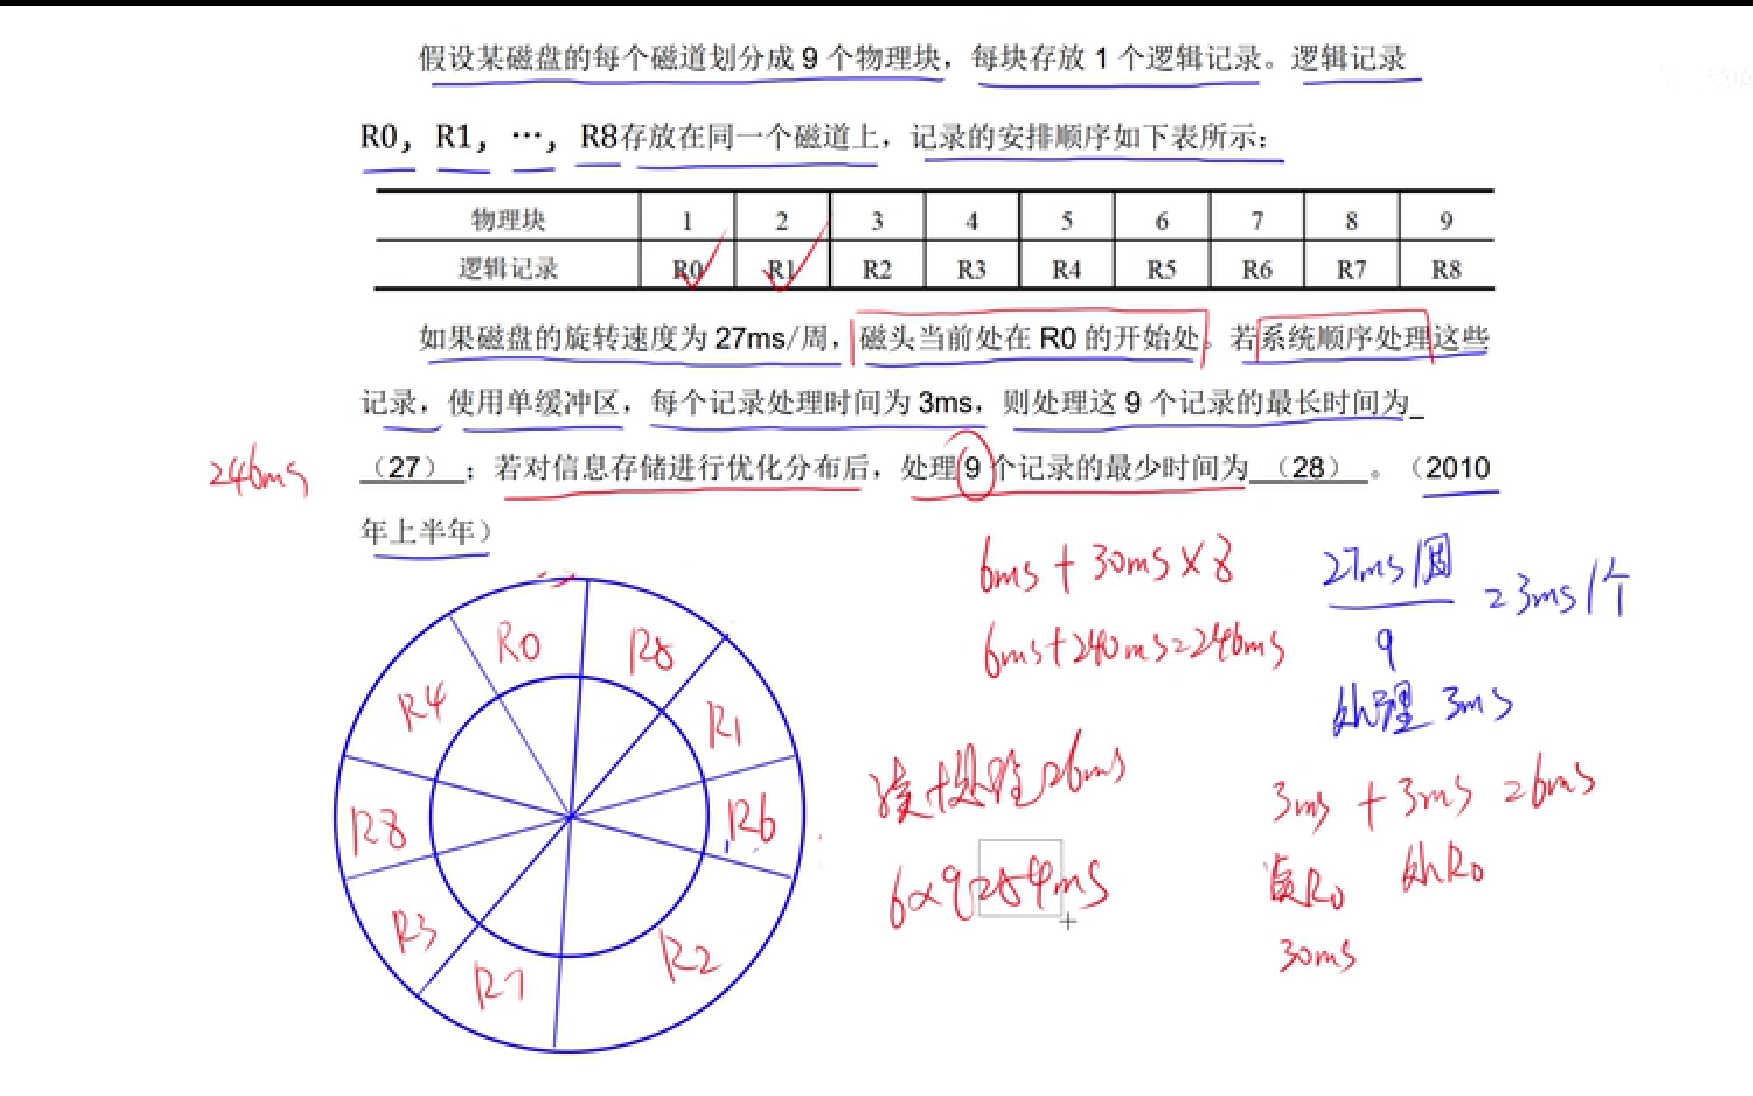 假设某磁盘的每个磁道划分成 9 个物理块，每块存放 1 个逻辑记录。逻辑记录
R0，R1，…，R8存放在同一个磁道上，记录的安排顺序如下表所示：
物理块 1 2 3 4 5 6 7 8 9
逻辑记录 R0 R1 R2 R3 R4 R5 R6 R7 R8
如果磁盘的旋转速度为 27ms/周，磁头当前处在 R0 的开始处。若系统顺序处理这些
记录，使用单缓冲区，每个记录处理时间为 3ms，则处理这 9 个记录的最长时间为_
246ms （27）；若对信息存储进行优化分布后，处理 9 个记录的最少时间为（28）。（2010
年上半年）
6ms + 30ms × 8
27ms/圆
9
=3ms/个
6ms+240ms=246ms
处理 3ms
R0
R1
R6
R2
R7
R3
R8
R4
读+处理=6ms
3ms + 3ms = 6ms
读R0 处R0
6×9=54ms
30ms